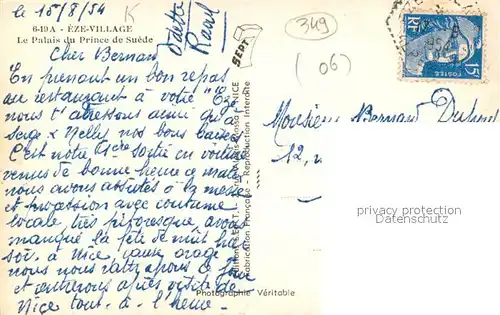 le 15/8/54
K
6-19 A - ÈZE-VILLAGE
Le Palais du Prince de Suède
Cher Bernard
En prenant un bon repas
au restaurant à votre
nous t'adressons ainsi qu'à
Serge & Nelly nos bons baisers
C'est notre 1ère sortie en voiture
venus de bonne heure ce matin
nous avons assistés à la messe
et procession avec coutume
locale très pittoresque avons
manqué la fête de nuit hier
soir à Nice cause orage
nous nous rattrapons ce jour
et rentrerons après visite de
Nice tout à l'heure
SEPT
NICE
Fabrication Française - Reproduction Interdite
Photographie Véritable
349
(06)
RF
POSTES
15F
Monsieur Bernard
12,
privacy protection
Datenschutz